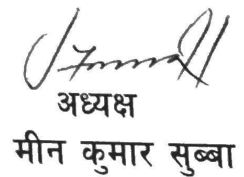 अध्यक्ष
मीन कुमार सुब्बा